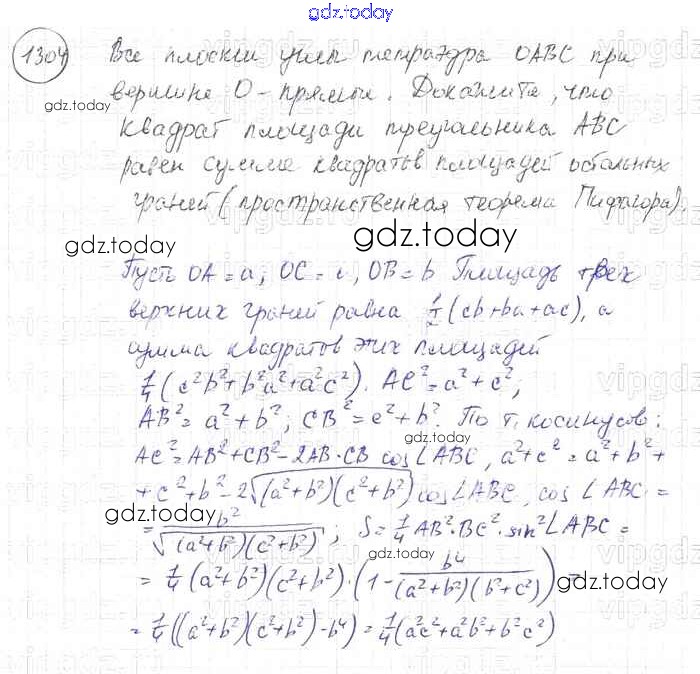 gdz.today
1304 Все плоские углы тетраэдра OABC при
вершине O - прямые. Докажите, что
gdz.today
квадрат площади треугольника ABC
равен сумме квадратов площадей остальных
граней (пространственная теорема Пифагора).
gdz.today gdz.today
Пусть OA = a; OC = c, OB = b Площадь трёх
верхних граней равна 1/2 (cb+ba+ac), а
сумма квадратов этих площадей
1/4 (c²b²+b²a²+a²c²). AC² = a²+c²;
AB² = a²+b²; CB² = c²+b². По т. косинусов:
gdz.today
AC² = AB²+CB²-2AB·CB cos∠ABC, a²+c² = a²+b²+
+c²+b²-2√((a²+b²)(c²+b²)) cos∠ABC, cos∠ABC =
gdz.today
= b²/√((a²+b²)(c²+b²)); S = 1/4 AB²·BC²·sin²∠ABC =
gdz.today
= 1/4 (a²+b²)(c²+b²)·(1 - b⁴/((a²+b²)(b²+c²))) =
= 1/4((a²+b²)(c²+b²)-b⁴) = 1/4(a²c²+a²b²+b²c²)
gdz.today